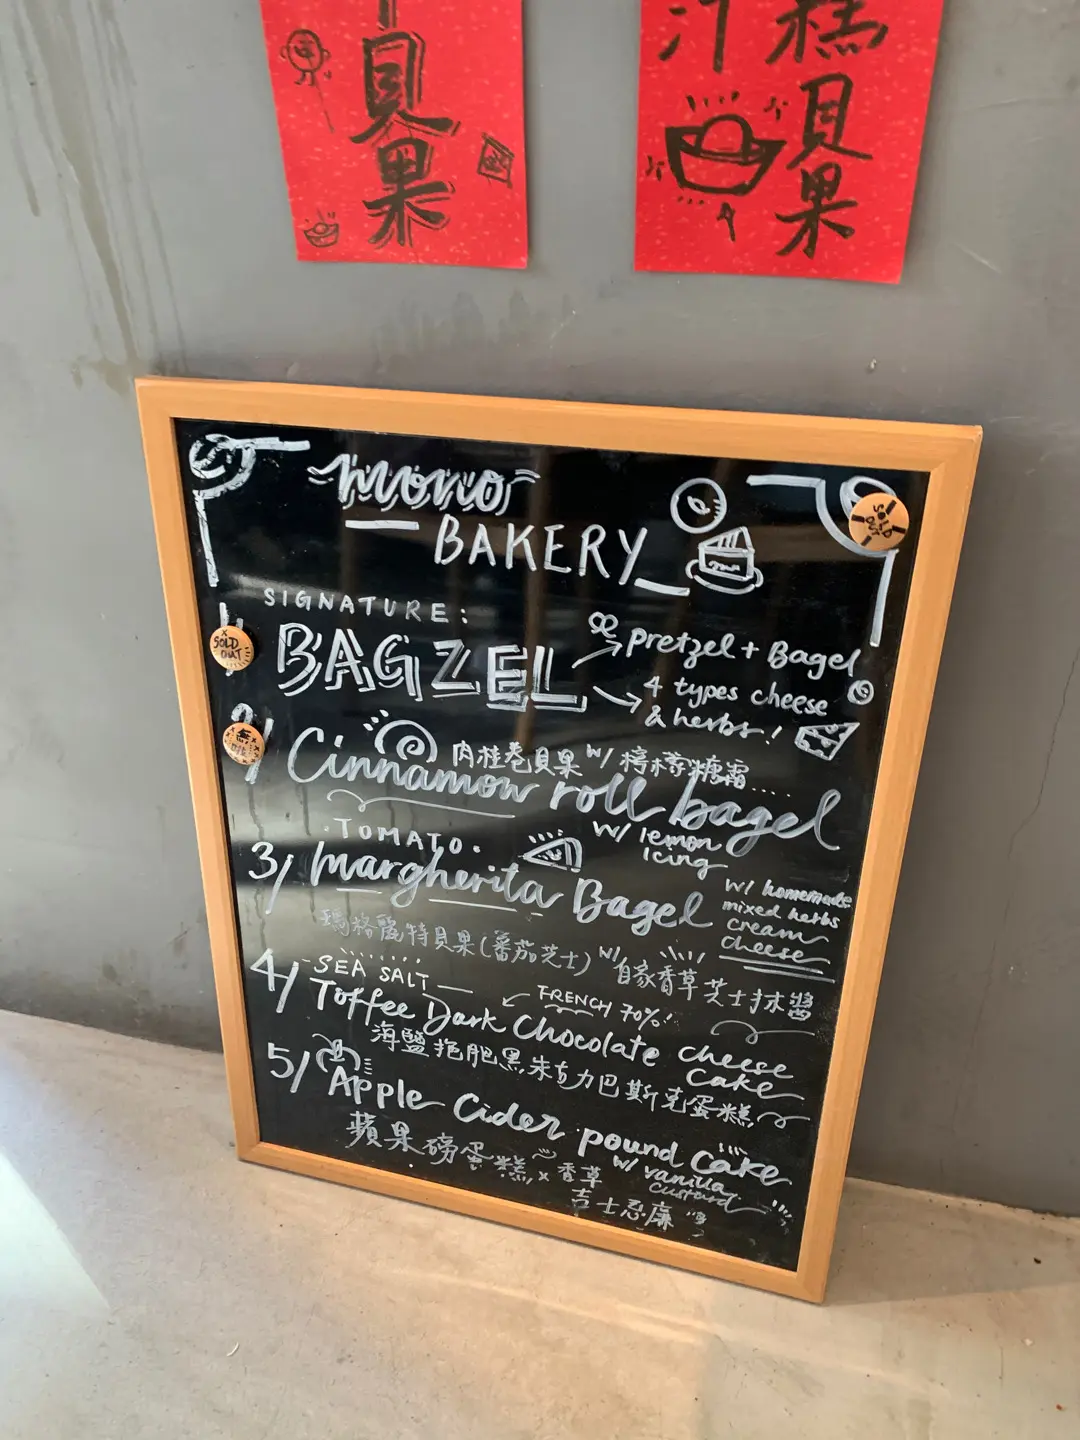 貝果
汁
糕貝果
mono
BAKERY
SOLD OUT
SIGNATURE:
1/
SOLD OUT
BAGZEL
pretzel + Bagel
4 types cheese
& herbs!
2/
無
肉桂卷貝果 w/ 檸檬糖霜.....
Cinnamon roll bagel
w/ lemon
Icing
.TOMATO.
3/ margherita Bagel
w/ homemade
mixed herbs
cream
cheese
瑪格麗特貝果(蕃茄芝士) w/ 自家香草芝士抹醬
4/ SEA SALT
FRENCH 70%!
Toffee Dark Chocolate cheese
cake
海鹽拖肥黑朱古力巴斯克蛋糕
5/ Apple Cider pound cake
w/ vanilla
custard
蘋果磅蛋糕 x 香草
吉士忌廉